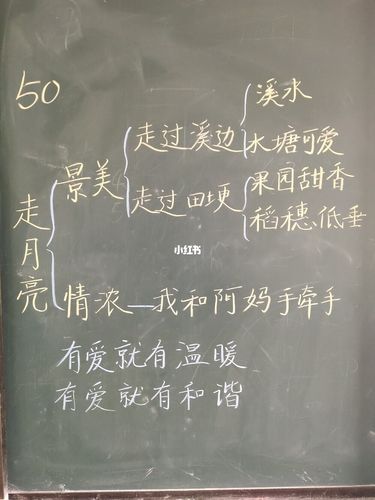 50
走月亮
景美
走过溪边
溪水
水塘可爱
走过田埂
果园甜香
稻穗低垂
小红书
情浓—我和阿妈手牵手
有爱就有温暖
有爱就有和谐